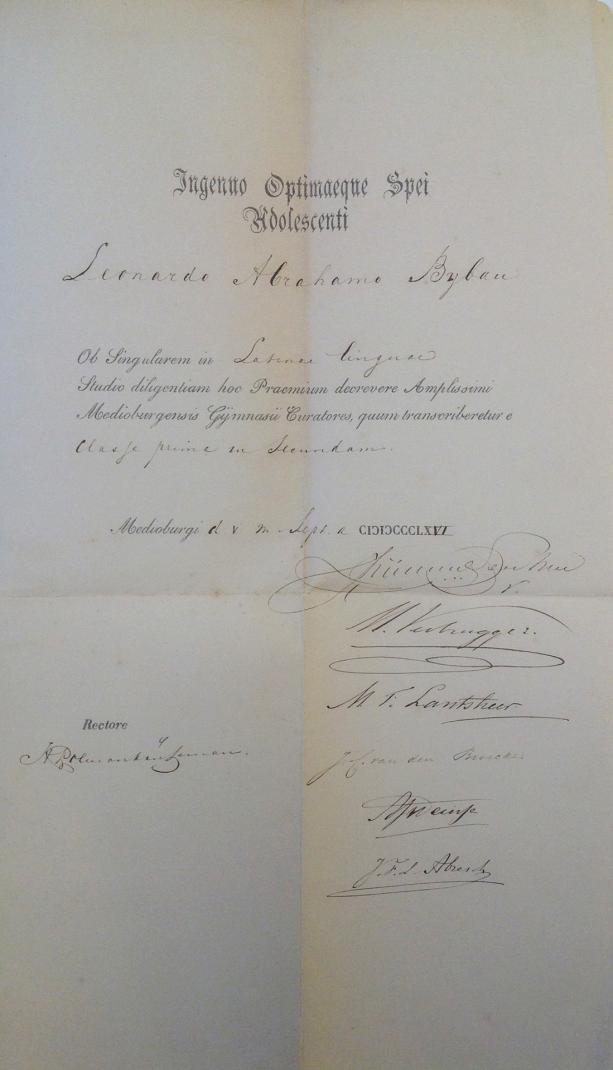 Ingenuo Optimaeque Spei
Adolescenti
Leonardo Abrahamo Bybau
Ob Singularem in Latinae linguae
Studio diligentiam hoc Praemium decrevere Amplissimi
Medioburgensis Gÿmnasii Curatores, quum transcriberetur e
Classe prima in Secundam.
Medioburgi d v m Sept. a CIƆIƆCCCLXVI
M. Verbrugge
M F. Lantsheer
J. C. van den Broecke
J. F. L. Abresch
Rectore